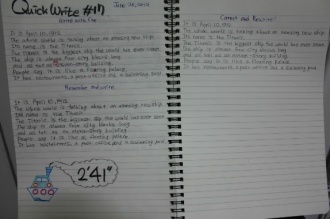 Quick Write #17
It is April 10, 1912.
The whole world is talking about an amazing new ship.
Its name is the Titanic.
The Titanic is the biggest ship the world has ever seen.
The ship is always four city blocks long
and as tall as an eleven-story building.
People say it is like a floating palace.
It has restaurants, a post office and a swimming pool.
Remember and write
It is April 10, 1912.
The whole world is talking about an amazing new ship.
Its name is the Titanic.
The Titanic is the biggest ship the world has ever seen.
The ship is always four city blocks long
and as tall as an eleven-story building.
People say it is like a floating palace.
It has restaurants, a post office and a swimming pool.
2'41"
Correct and Rewrite
It is April 10, 1912.
The whole world is talking about an amazing new ship.
Its name is the Titanic.
The Titanic is the biggest ship the world has ever seen.
The ship is four city blocks long
and as tall as an eleven-story building.
People say it is like a floating palace.
It has restaurants, a post office and a swimming pool.